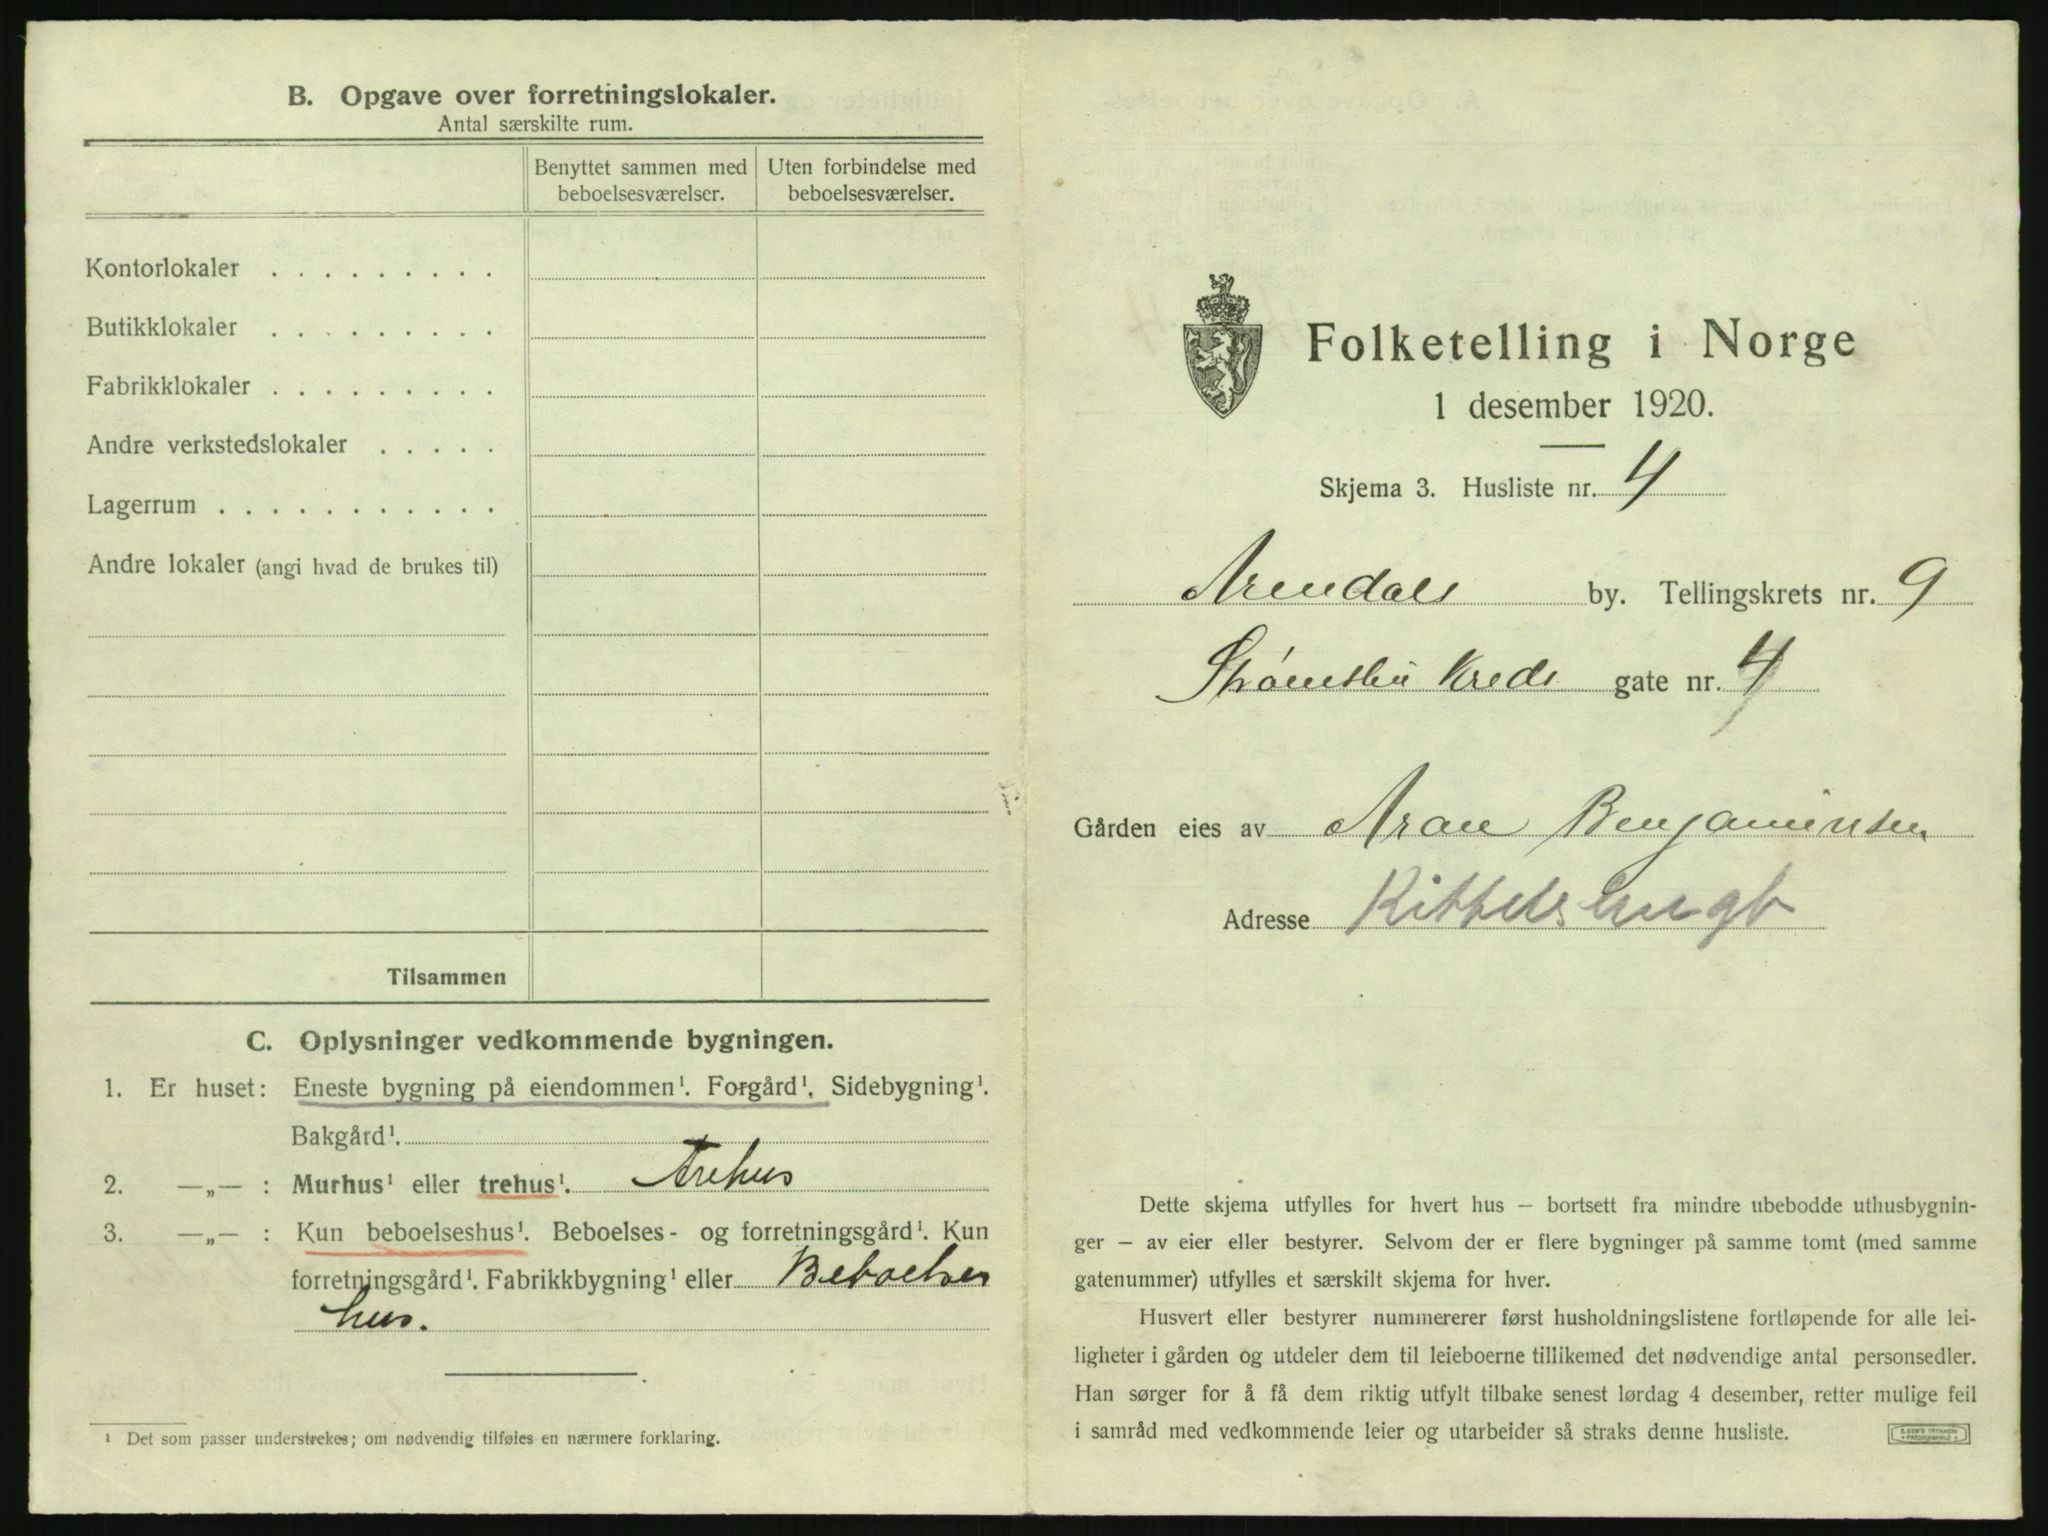 B. Opgave over forretningslokaler.
Antal særskilte rum.
Benyttet sammen med beboelsesværelser.
Uten forbindelse med beboelsesværelser.
Kontorlokaler . . . . . . . . .
Butikklokaler . . . . . . . . .
Fabrikklokaler . . . . . . . . .
Andre verkstedslokaler . . . . .
Lagerrum . . . . . . . . . . . .
Andre lokaler (angi hvad de brukes til)
Tilsammen
C. Oplysninger vedkommende bygningen.
1. Er huset: Eneste bygning på eiendommen¹. Forgård¹. Sidebygning¹.
Bakgård¹.
2. —„— : Murhus¹ eller trehus¹. Trehus
3. —„— : Kun beboelseshus¹. Beboelses- og forretningsgård¹. Kun
forretningsgård¹. Fabrikkbygning¹ eller Beboelses
hus.
¹ Det som passer understrekes; om nødvendig tilføies en nærmere forklaring.
Folketelling i Norge
1 desember 1920.
Skjema 3. Husliste nr. 4
Arendals by. Tellingskrets nr. 9
Strømsbu Kreds gate nr. 4
Gården eies av Aron Benjaminsen
Adresse
Dette skjema utfylles for hvert hus – bortsett fra mindre ubebodde uthusbygnin-
ger – av eier eller bestyrer. Selvom der er flere bygninger på samme tomt (med samme
gatenummer) utfylles et særskilt skjema for hver.
Husvert eller bestyrer nummererer først husholdningslistene fortløpende for alle lei-
ligheter i gården og utdeler dem til leieboerne tillikemed det nødvendige antal personsedler.
Han sørger for å få dem riktig utfylt tilbake senest lørdag 4 desember, retter mulige feil
i samråd med vedkommende leier og utarbeider så straks denne husliste.
E. SEM'S TRYKKERI
FREDRIKSHALD